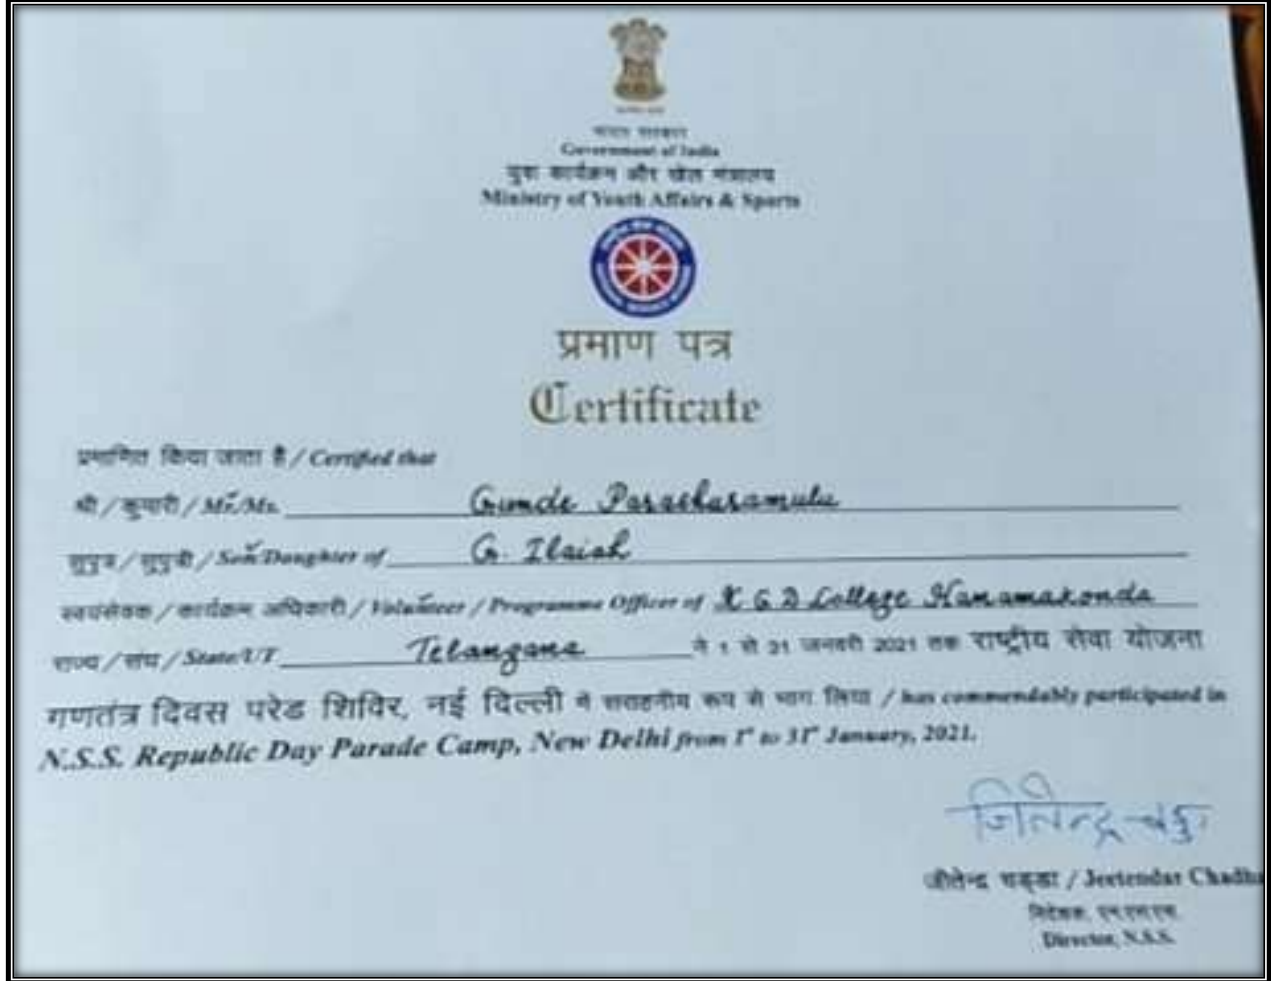 भारत सरकार
Government of India
युवा कार्यक्रम और खेल मंत्रालय
Ministry of Youth Affairs & Sports
प्रमाण पत्र
Certificate
प्रमाणित किया जाता है / Certified that
श्री / कुमारी / Mr./Ms. Gunde Parasharamulu
सुपुत्र / सुपुत्री / Son/Daughter of G. Ilaiah
स्वयंसेवक / कार्यक्रम अधिकारी / Volunteer / Programme Officer of K G D College Hanamakonda
राज्य / संघ / State/UT Telangana ने 1 से 31 जनवरी 2021 तक राष्ट्रीय सेवा योजना
गणतंत्र दिवस परेड शिविर, नई दिल्ली में सराहनीय रूप से भाग लिया / has commendably participated in
N.S.S. Republic Day Parade Camp, New Delhi from 1st to 31st January, 2021.
जितेन्द्र चड्ढा
जीतेन्द्र चड्ढा / Jeetendar Chadha
निदेशक, एन.एस.एस.
Director, N.S.S.